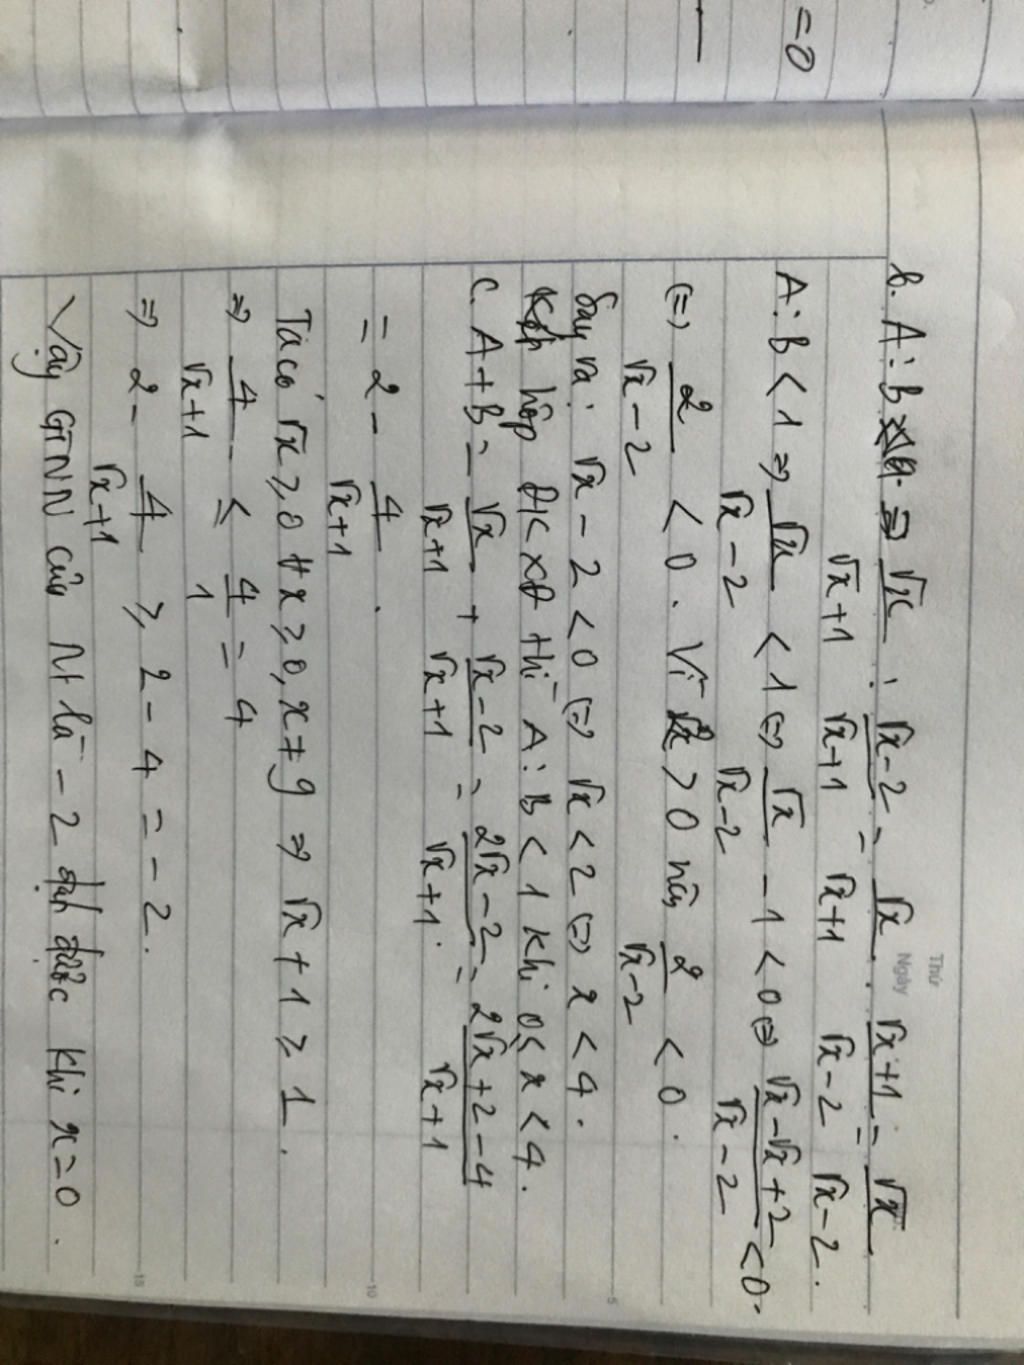 = 0
Thứ
Ngày
b. A : B ⇒ √x/(√x+1) : (√x-2)/(√x+1) = √x/(√x+1) . (√x+1)/(√x-2) = √x/(√x-2).
A : B < 1 ⇒ √x/(√x-2) < 1 ⇔ √x/(√x-2) - 1 < 0 ⇔ (√x-√x+2)/(√x-2) < 0.
(=) 2/(√x-2) < 0. Vì 2 > 0 nên 2/(√x-2) < 0.
Xảy ra: √x - 2 < 0 ⇔ √x < 2 ⇔ x < 4.
Kết hợp ĐKXĐ thì A : B < 1 khi 0 ≤ x < 4.
C. A + B = √x/(√x+1) + (√x-2)/(√x+1) = (2√x-2)/(√x+1) = (2√x+2-4)/(√x+1)
= 2 - 4/(√x+1).
Ta có √x ≥ 0 ∀x ≥ 0, x ≠ 9 ⇒ √x + 1 ≥ 1.
⇒ 4/(√x+1) ≤ 4/1 = 4
⇒ 2 - 4/(√x+1) ≥ 2 - 4 = -2.
Vậy GTNN của Nt là -2 đạt được khi x = 0.
5
10
15